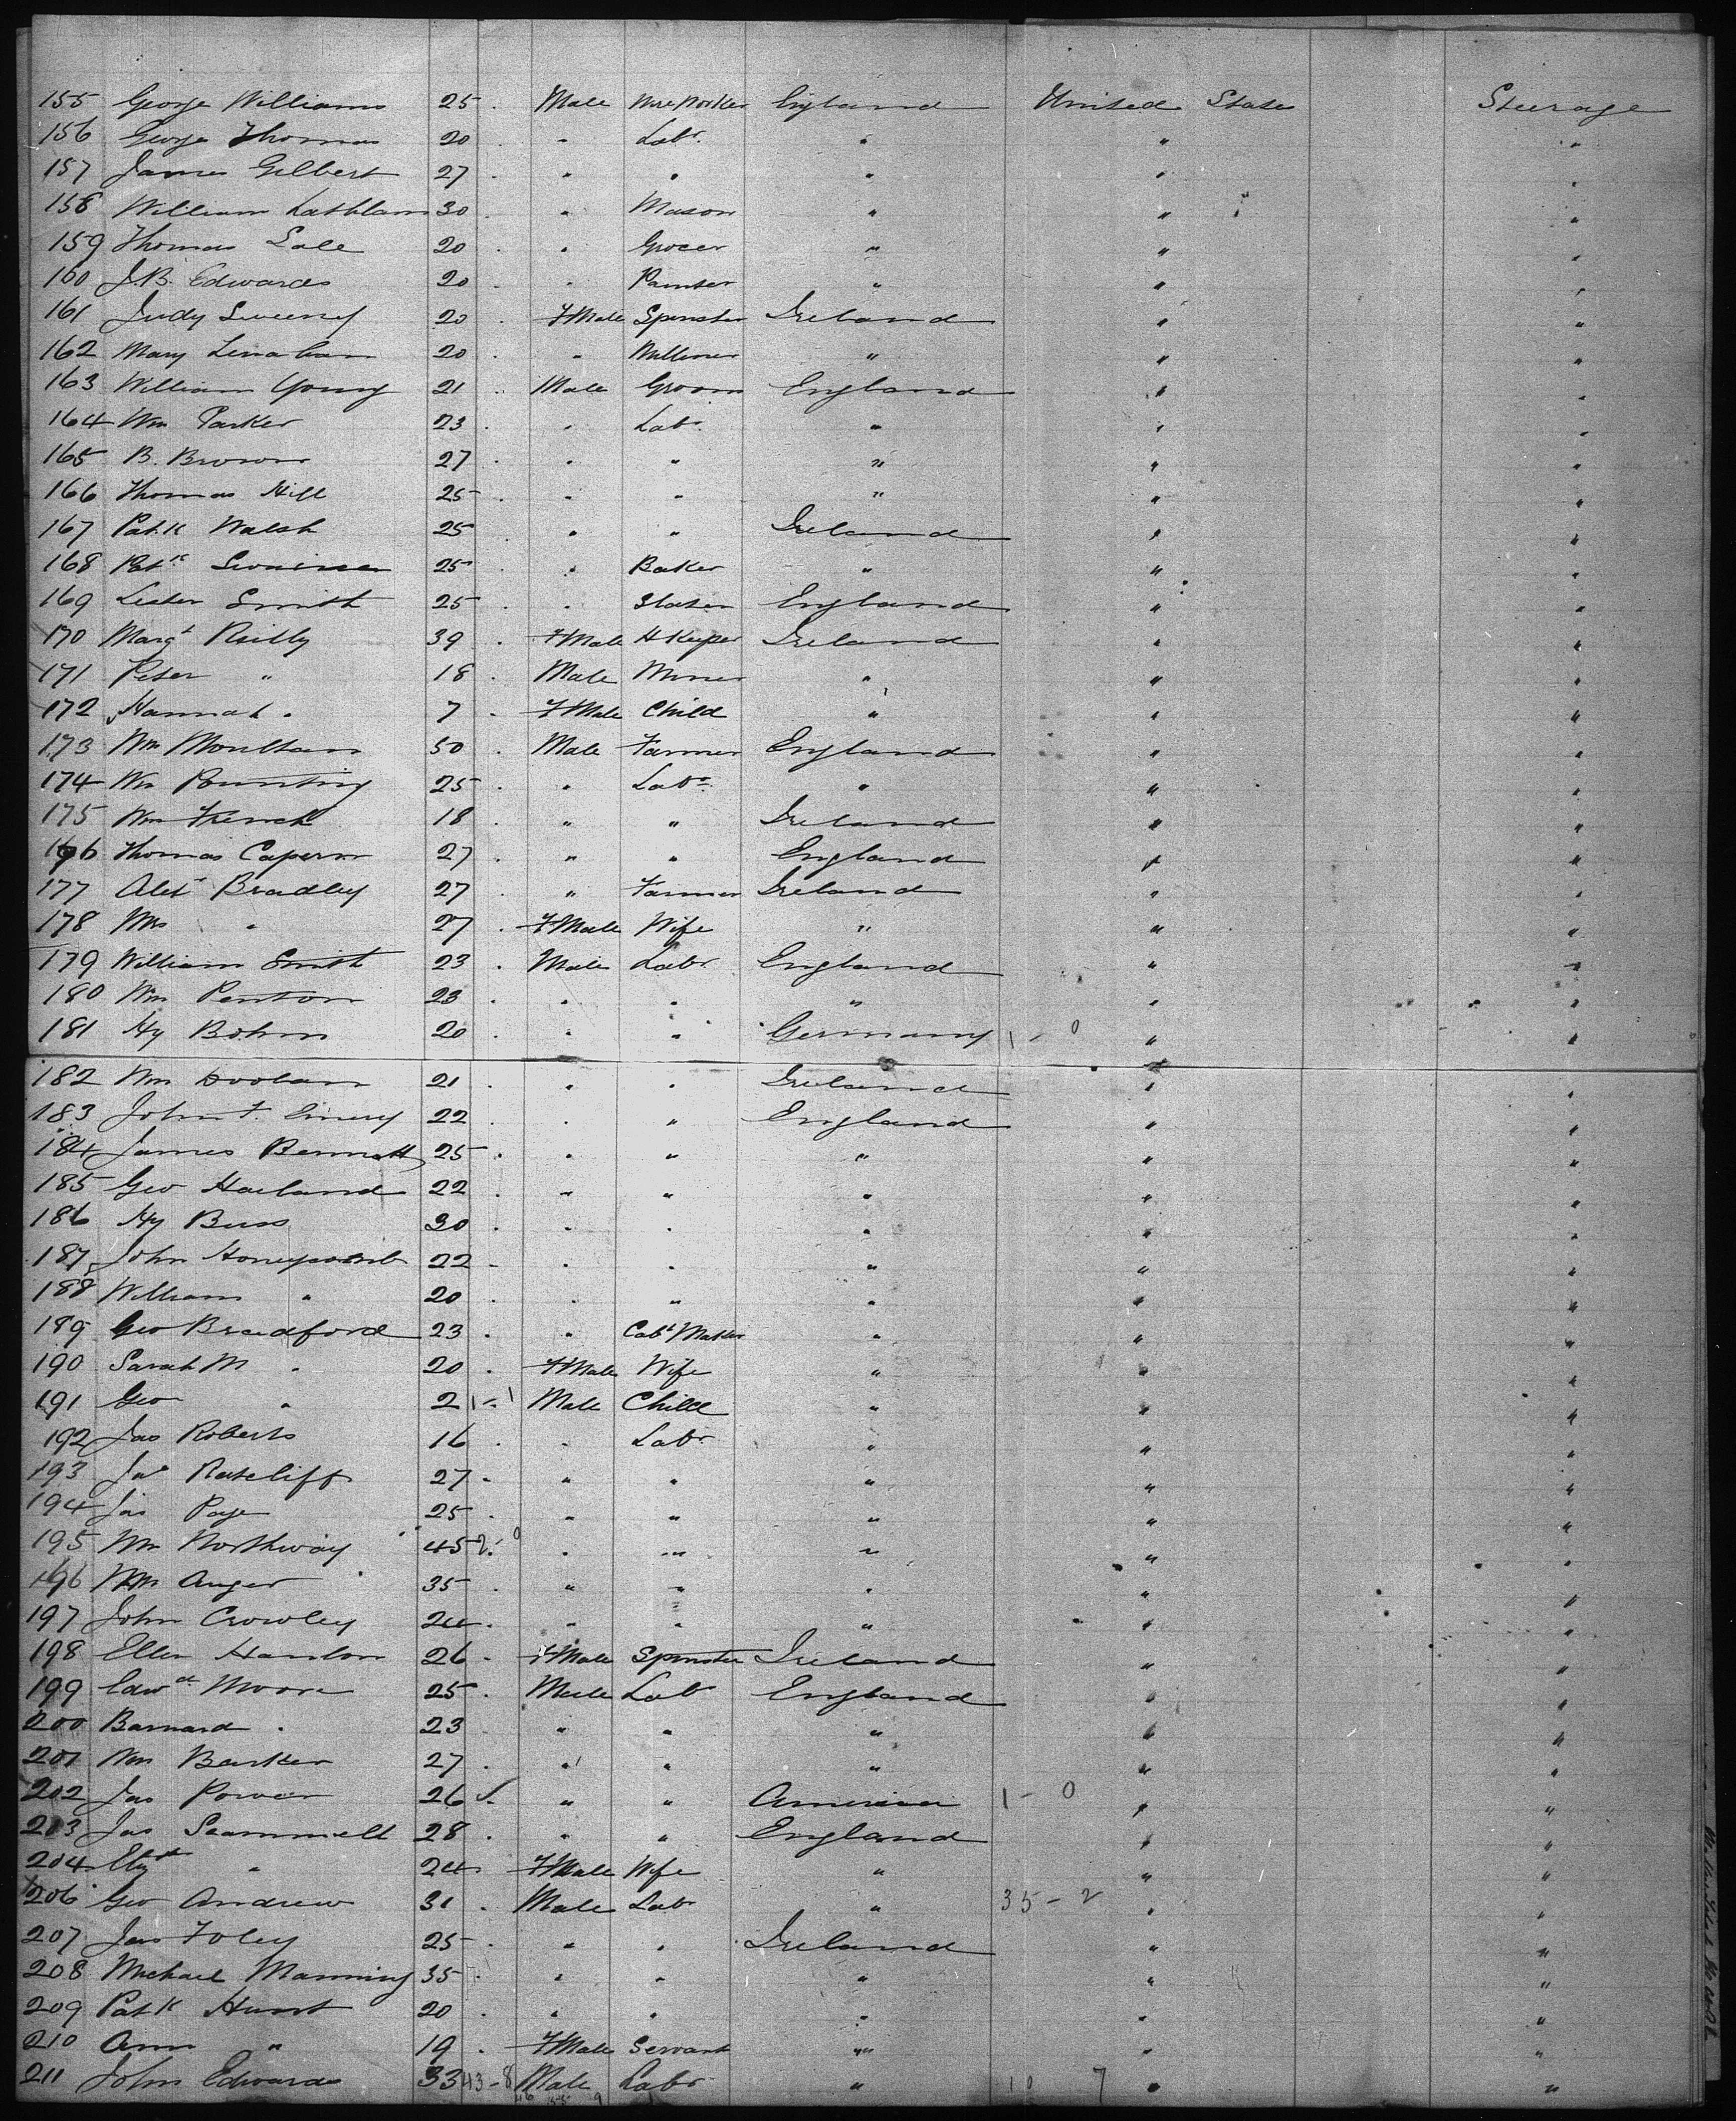 155 George Williams 25 Male Wire Worker England United States Steerage
156 George Thomas 20 " Labr. " " "
157 James Gilbert 27 " " " " "
158 William Lathlam 30 " Mason " " "
159 Thomas Sale 20 " Grocer " " "
160 J.B. Edwards 20 " Painter " " "
161 Judy Sweeney 20 FMale Spinster Ireland " "
162 Mary Lenahan 20 " Milliner " " "
163 William Young 21 Male Groom England " "
164 Wm Parker 23 " Labr. " " "
165 B. Brown 27 " " " " "
166 Thomas Hill 25 " " " " "
167 Patk Walsh 25 " " Ireland " "
168 Patk 25 " Baker " " "
169 Lester Smith 25 " Slater England " "
170 Margt Reilly 39 FMale HKeeper Ireland " "
171 Peter " 18 Male Miner " " "
172 Hannah " 7 FMale Child " " "
173 Wm Moulham 50 Male Farmer England " "
174 Wm Pounting 25 " Labr " " "
175 Wm French 18 " " Ireland " "
176 Thomas Capern 27 " " England " "
177 Alexr Bradley 27 " Farmer Ireland " "
178 Mrs " 27 FMale Wife " " "
179 William Smith 23 Male Labr England " "
180 Wm Penton 23 " " " " "
181 Hy Bohm 20 " " Germany 1 - 0 " "
182 Wm Doolan 21 " " Ireland " "
183 John F. Emery 22 " " England " "
184 James Bennett 25 " " " " "
185 Geo Harland 22 " " " " "
186 Hy Buss 30 " " " " "
187 John Honeycomb 22 " " " " "
188 William " 20 " " " " "
189 Geo Bradford 23 " Cabt Maker " " "
190 Sarah M " 20 FMale Wife " " "
191 Geo " 2 1-1 Male Child " " "
192 Jas Roberts 16 " Labr " " "
193 Jas Ratcliff 27 " " " " "
194 Jas Page 25 " " " " "
195 Wm Northway 45 2-0 " " " " "
196 Wm Anger 35 " " " " "
197 John Crowley 24 " " " " "
198 Ellen Hanlon 26 FMale Spinster Ireland " "
199 Edwd Moore 25 Male Labr England " "
200 Barnard " 23 " " " " "
201 Wm Barker 27 " " " " "
202 Jas Power 26 " " America 1 - 0 " "
203 Jas Scammell 28 " " England " "
204 Elizth " 24 FMale Wife " " "
206 Geo Andrew 31 Male Labr " 35 - 2 " "
207 Jas Foley 25 " " Ireland " "
208 Michael Manning 35 " " " " "
209 Patk Hunt 20 " " " " "
210 Ann " 19 FMale Servant " " "
211 John Edwards 33 43-8 Male Labr " 10 7 " "